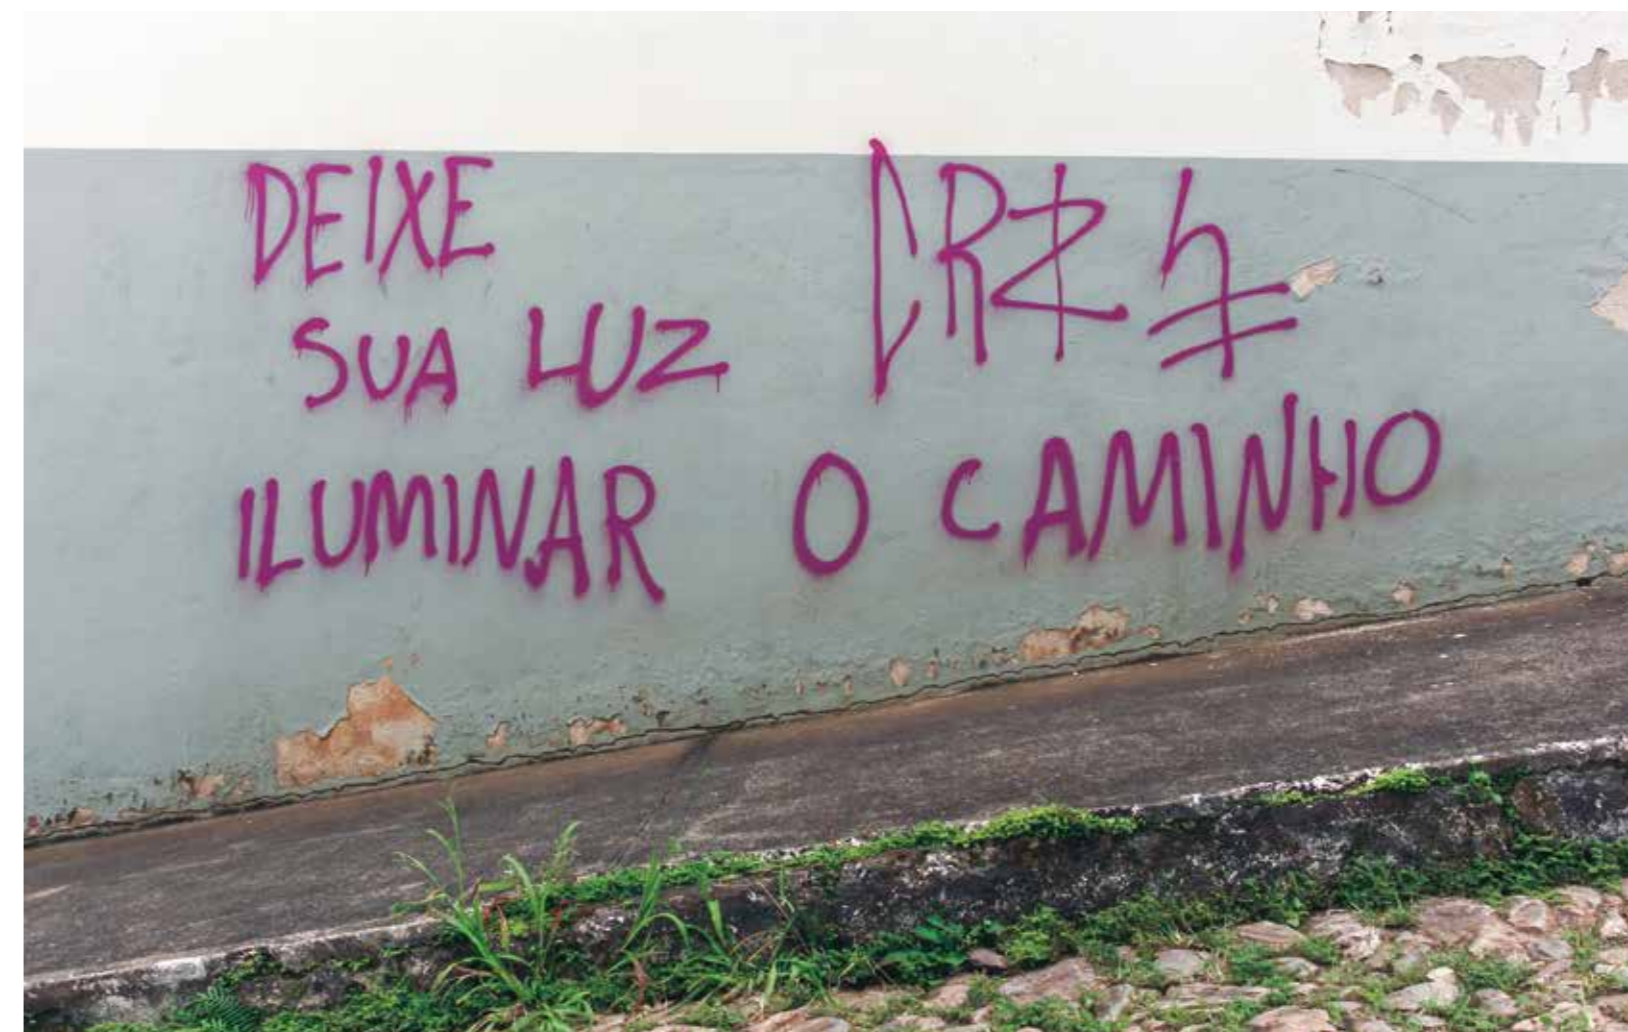 DEIXE
SUA LUZ
ILUMINAR O CAMINHO